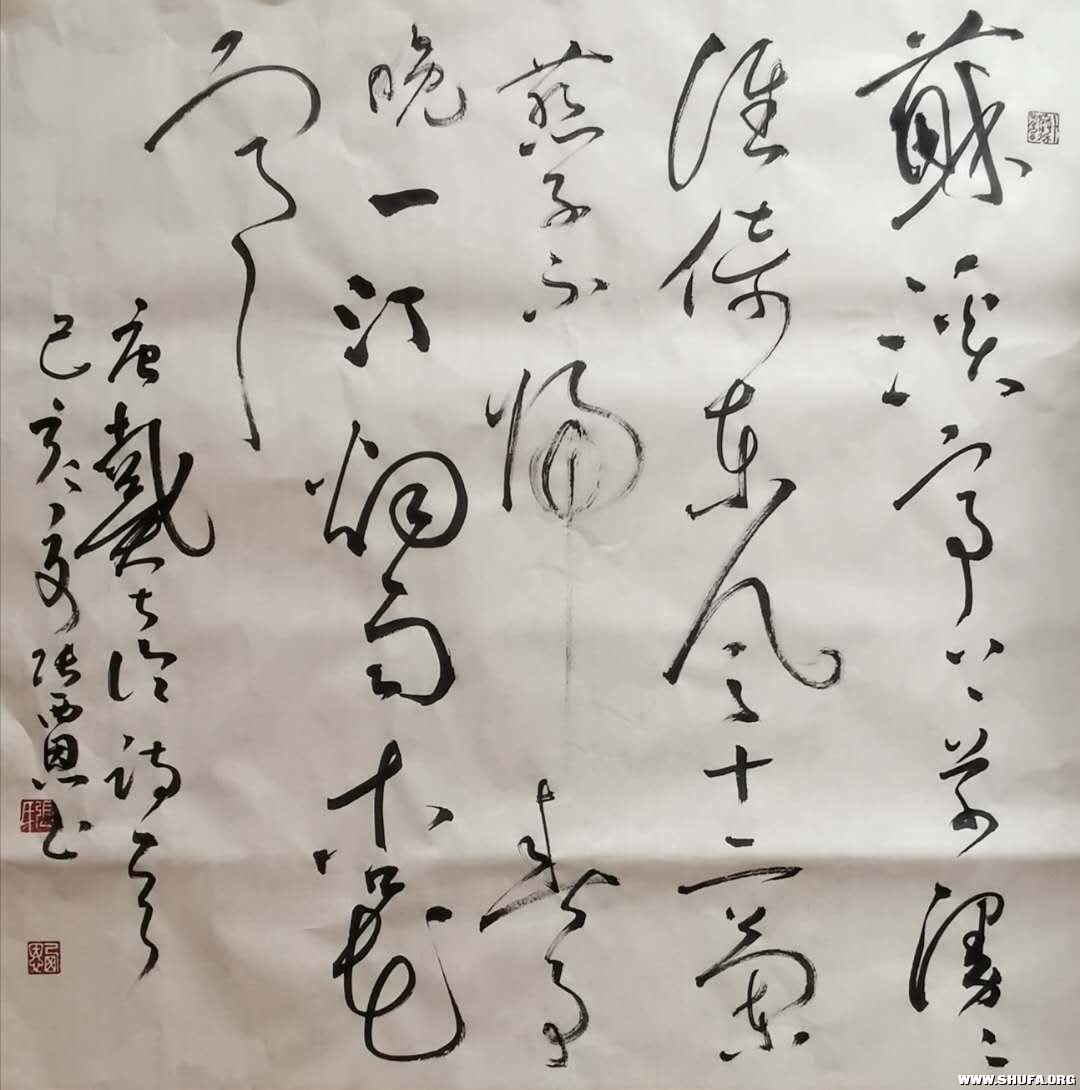 蘇溪亭上草漫漫
誰倚東風十二蘭
燕子不歸春事
晚一汀烟雨杏花
寒
唐戴叔倫詩一首
己亥夏張西恩书
WWW.SHUFA.ORG